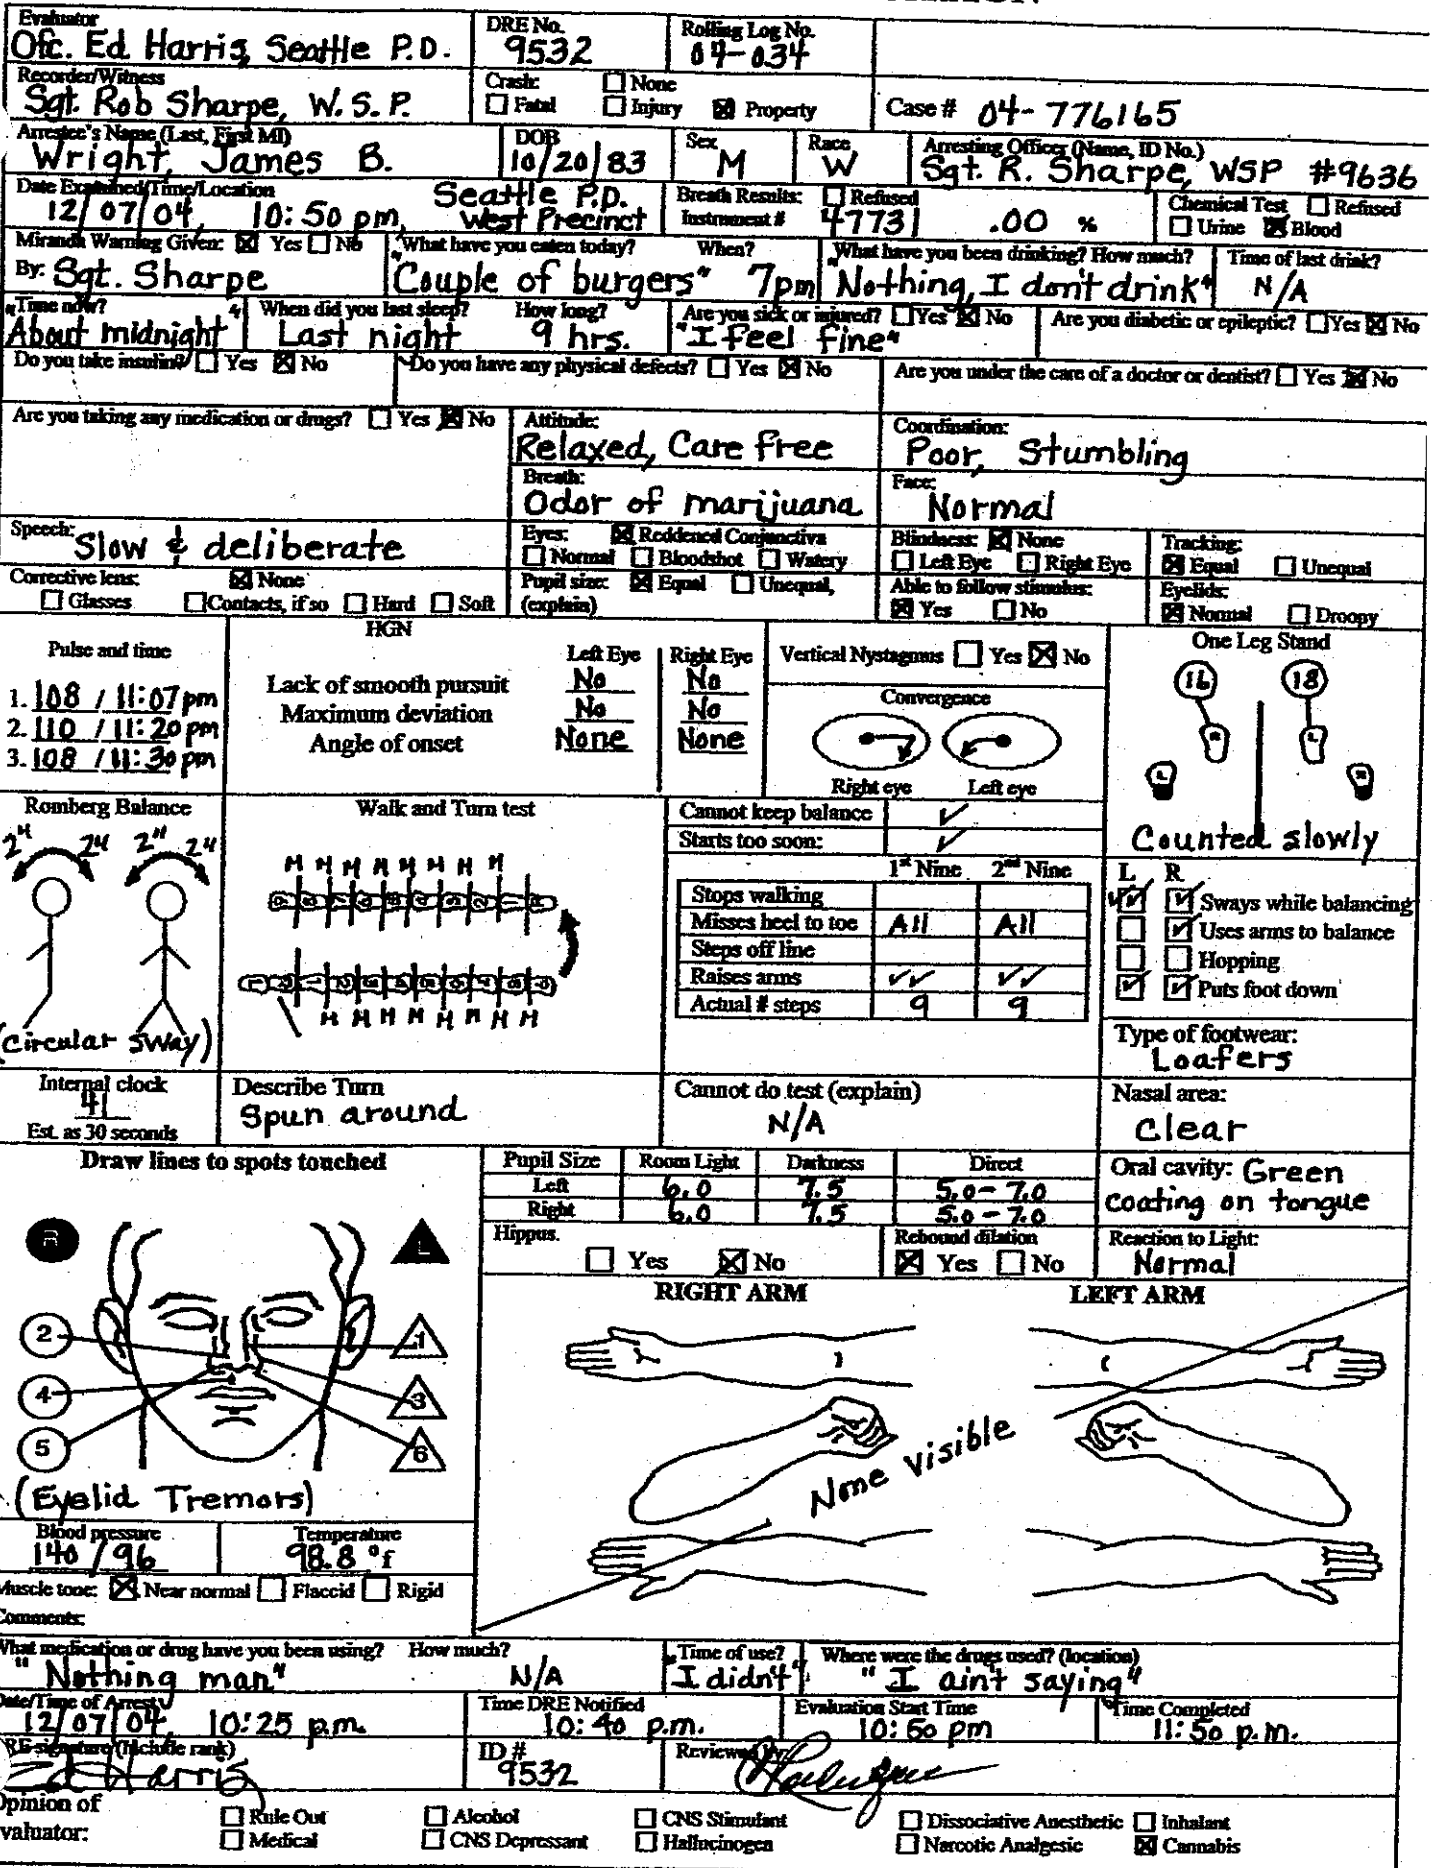 Evaluator
Ofc. Ed Harris, Seattle P.D.
DRE No.
9532
Rolling Log No.
04-034
Recorder/Witness
Sgt. Rob Sharpe, W.S.P.
Crash: ☐ None
☐ Fatal ☐ Injury ☒ Property
Case # 04-776165
Arrestee's Name (Last, First MI)
Wright, James B.
DOB
10/20/83
Sex
M
Race
W
Arresting Officer (Name, ID No.)
Sgt. R. Sharpe, WSP #9636
Date Examined/Time/Location
12/07/04, 10:50 pm, Seattle P.D. West Precinct
Breath Results: ☐ Refused
Instrument # 47731 .00 %
Chemical Test ☐ Refused
☐ Urine ☒ Blood
Miranda Warning Given: ☒ Yes ☐ No
By: Sgt. Sharpe
What have you eaten today? When?
"Couple of burgers" 7pm
What have you been drinking? How much?
"Nothing, I don't drink"
Time of last drink?
N/A
Time now?
"About midnight"
When did you last sleep? How long?
Last night 9 hrs.
Are you sick or injured? ☐ Yes ☒ No
"I feel fine"
Are you diabetic or epileptic? ☐ Yes ☒ No
Do you take insulin? ☐ Yes ☒ No
Do you have any physical defects? ☐ Yes ☒ No
Are you under the care of a doctor or dentist? ☐ Yes ☒ No
Are you taking any medication or drugs? ☐ Yes ☒ No
Attitude:
Relaxed, Care free
Coordination:
Poor, Stumbling
Breath:
Odor of marijuana
Face:
Normal
Speech: Slow & deliberate
Eyes: ☒ Reddened Conjunctiva
☐ Normal ☐ Bloodshot ☐ Watery
Blindness: ☒ None
☐ Left Eye ☐ Right Eye
Tracking:
☒ Equal ☐ Unequal
Corrective lens: ☒ None
☐ Glasses ☐ Contacts, if so ☐ Hard ☐ Soft
Pupil size: ☒ Equal ☐ Unequal,
(explain)
Able to follow stimulus:
☒ Yes ☐ No
Eyelids:
☒ Normal ☐ Droopy
Pulse and time
1. 108 / 11:07 pm
2. 110 / 11:20 pm
3. 108 / 11:30 pm
HGN
Left Eye Right Eye
Lack of smooth pursuit No No
Maximum deviation No No
Angle of onset None None
Vertical Nystagmus ☐ Yes ☒ No
Convergence
Right eye Left eye
One Leg Stand
16 18
R L
L R
Counted slowly
Romberg Balance
2" 2" 2" 2"
(Circular sway)
Walk and Turn test
M M M M M M M M
M M M M M M M M
Cannot keep balance ✓
Starts too soon: ✓
1st Nine 2nd Nine
Stops walking
Misses heel to toe All All
Steps off line
Raises arms ✓✓ ✓✓
Actual # steps 9 9
L R
☑ ☑ Sways while balancing
☐ ☑ Uses arms to balance
☐ ☐ Hopping
☑ ☑ Puts foot down
Type of footwear:
Loafers
Internal clock
41
Est. as 30 seconds
Describe Turn
Spun around
Cannot do test (explain)
N/A
Nasal area:
Clear
Draw lines to spots touched
R L
2 1
4 3
5 6
(Eyelid Tremors)
Pupil Size Room Light Darkness Direct
Left 6.0 7.5 5.0 - 7.0
Right 6.0 7.5 5.0 - 7.0
Oral cavity: Green
coating on tongue
Hippus.
☐ Yes ☒ No
Rebound dilation
☒ Yes ☐ No
Reaction to Light:
Normal
RIGHT ARM LEFT ARM
None visible
Blood pressure
140 / 96
Temperature
98.8 °f
Muscle tone: ☒ Near normal ☐ Flaccid ☐ Rigid
Comments:
What medication or drug have you been using? How much?
"Nothing man" N/A
Time of use?
"I didn't"
Where were the drugs used? (location)
"I ain't saying"
Date/Time of Arrest
12/07/04, 10:25 p.m.
Time DRE Notified
10:40 p.m.
Evaluation Start Time
10:50 pm
Time Completed
11:50 p.m.
DRE signature (Include rank)
Ed Harris
ID #
9532
Reviewed by:
Opinion of
Evaluator:
☐ Rule Out ☐ Alcohol ☐ CNS Stimulant ☐ Dissociative Anesthetic ☐ Inhalant
☐ Medical ☐ CNS Depressant ☐ Hallucinogen ☐ Narcotic Analgesic ☒ Cannabis